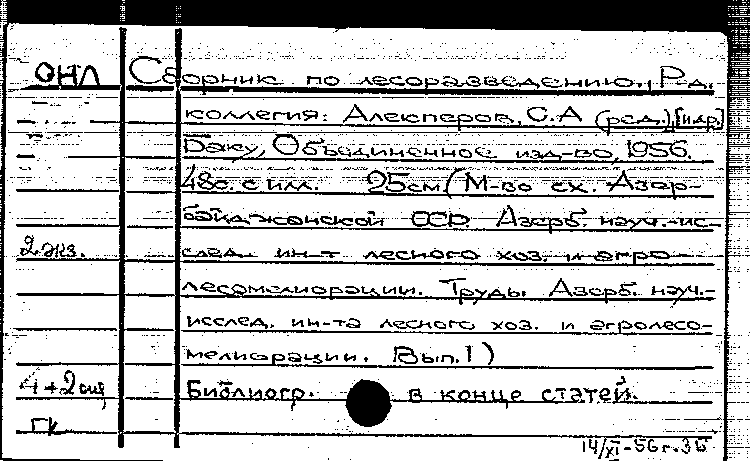 ОНЛ Сборник по лесоразведению. Ред.
коллегия: Алекперов, С.А (ред.), [и др.]
Баку, Объединенное изд-во, 1956.
48с. с илл. 25см (М-во с.х. Азер-
байджанской ССР. Азерб. науч.-ис-
2 экз. след. ин-т лесного хоз. и агро-
лесомелиорации. Труды Азерб. науч.-
исслед. ин-та лесного хоз. и агролесо-
мелиорации. Вып. 1)
4+2 Библиогр. в конце статей.
ГК
14/XI-56 г.